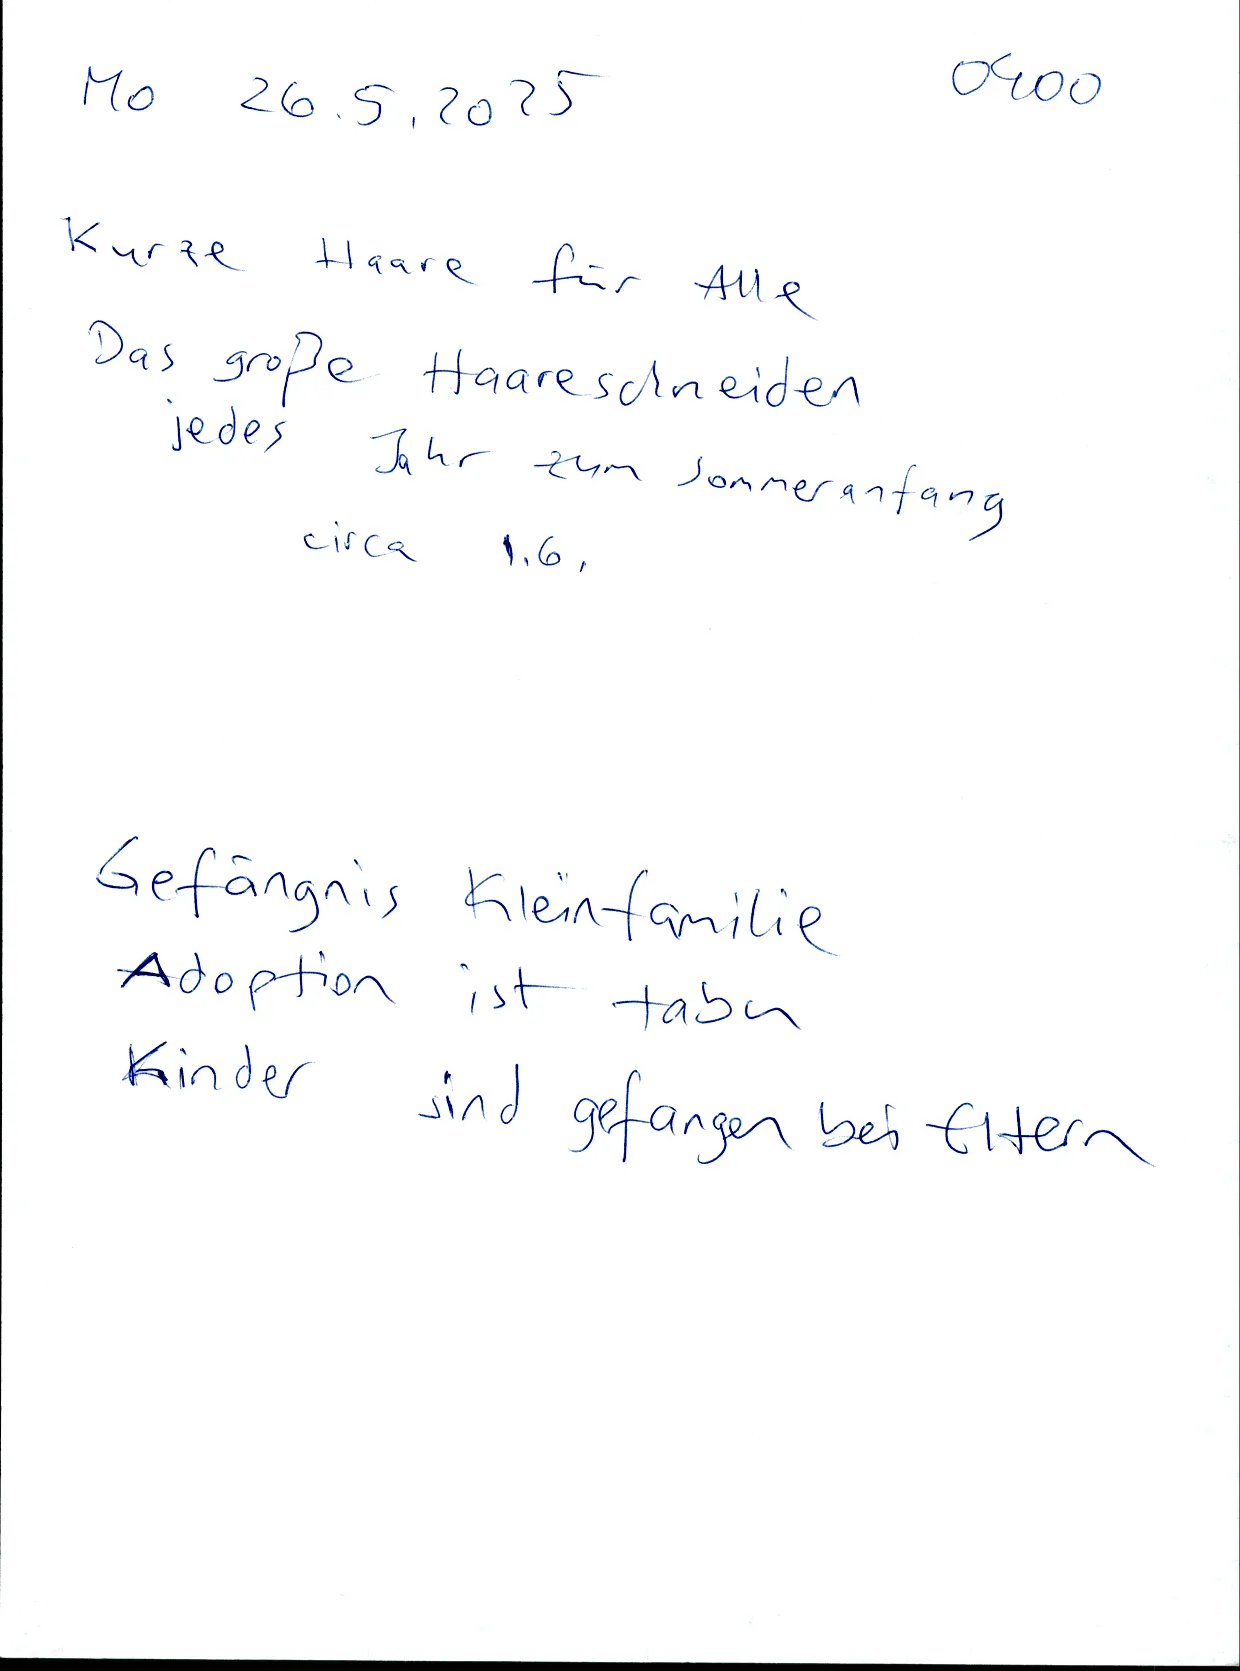 Mo 26.5.2025 0400
Kurze Haare für Alle
Das große Haareschneiden
jedes Jahr zum Sommeranfang
circa 1.6.
Gefängnis Kleinfamilie
Adoption ist tabu
Kinder sind gefangen bei Eltern